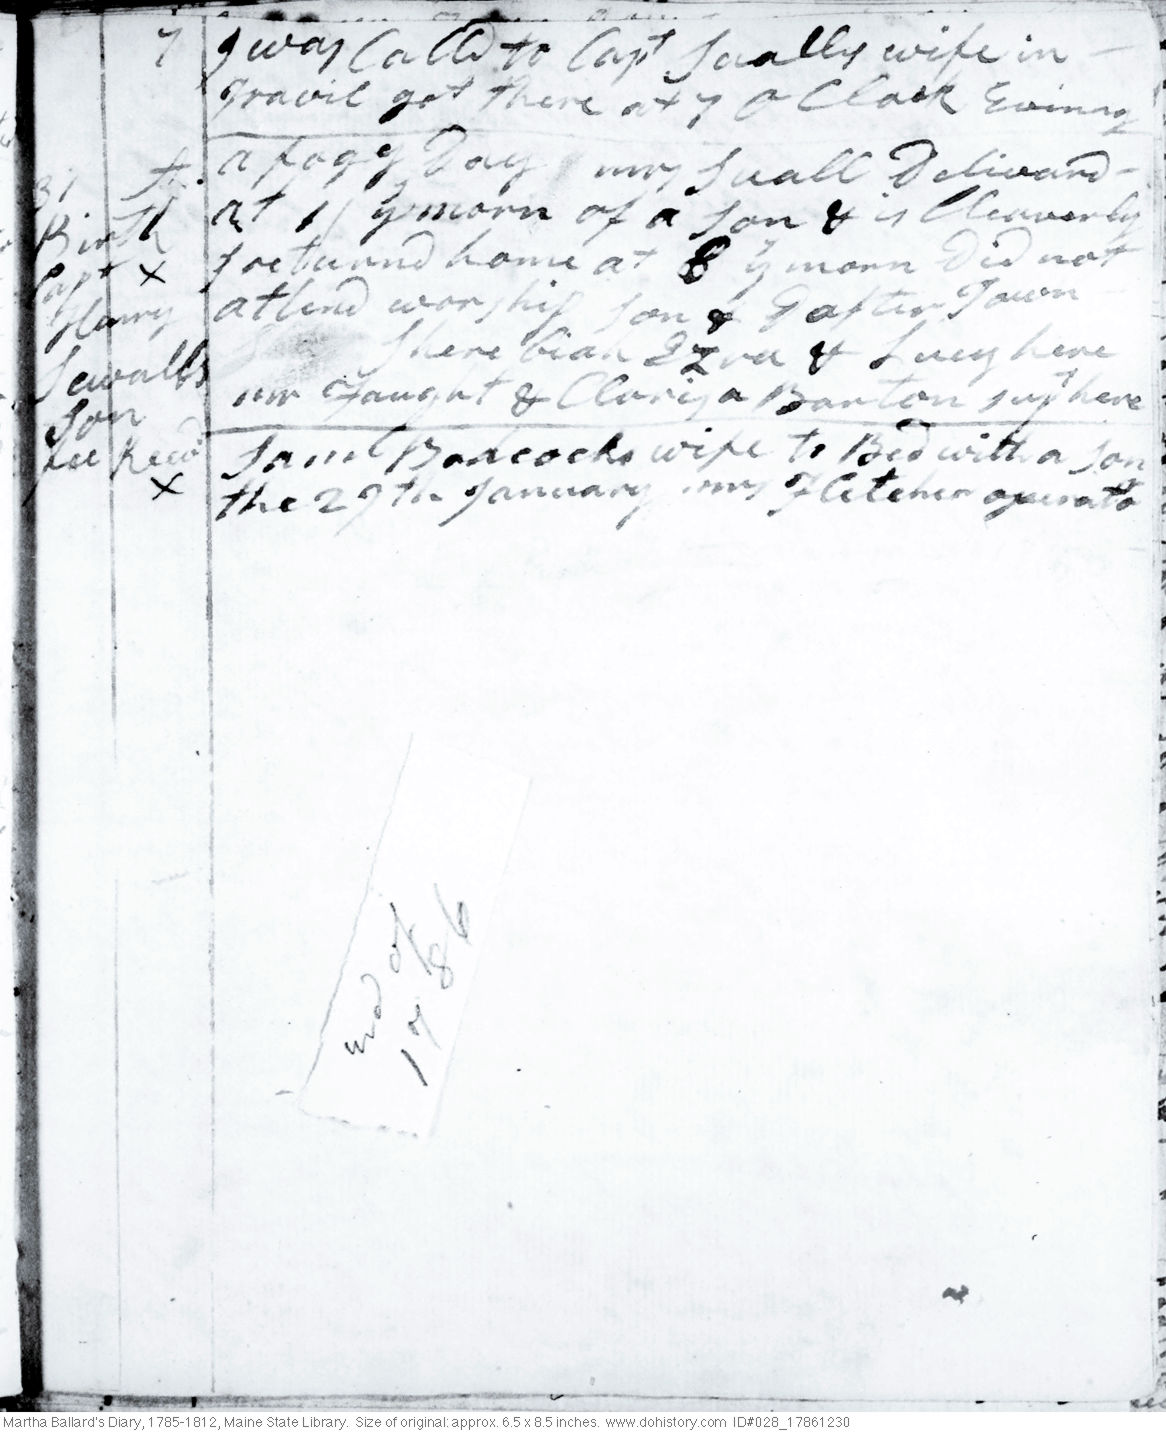 7 I was Calld to Capt Sualls wife in
Travil got there at 7 O Clock Evinng
31 a fogg y Day mrs Suall Deliverd
Birth at 11 y morn of a son & is Cleaverly
Capt x I returnd home at 8 y morn Did not
Henry attend worship son & Dafter Town
Sewalls here bian Ezra & Lucy here
Son mr Faught & Clarisa Barton supt here
fee Recd Saml Babcocks wife to Bed with a son
x the 27th January mrs Fletcher operato
end of
1786
Martha Ballard's Diary, 1785-1812, Maine State Library. Size of original: approx. 6.5 x 8.5 inches. www.dohistory.com ID#028_17861230